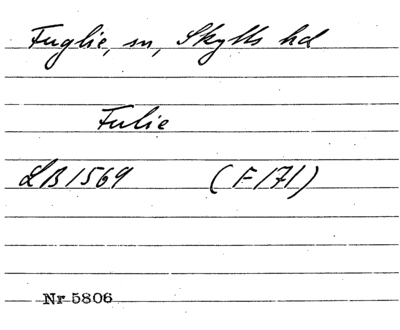 Fuglie, sn, Skytts hd
Fulie
LB 1569 (F 171)
Nr 5806